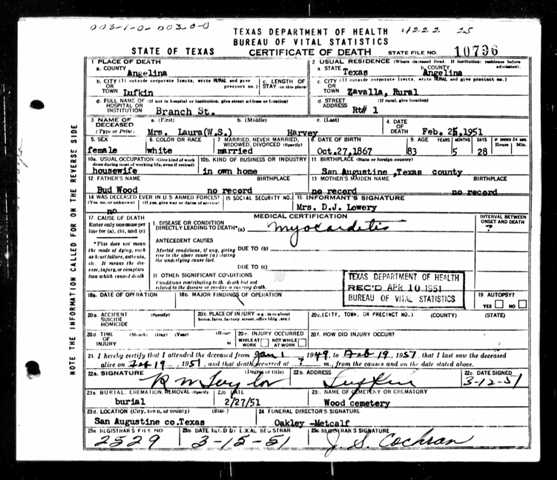 TEXAS DEPARTMENT OF HEALTH
BUREAU OF VITAL STATISTICS
STATE OF TEXAS CERTIFICATE OF DEATH STATE FILE NO. 10796
1 PLACE OF DEATH
a. COUNTY Angelina
2 USUAL RESIDENCE
a. STATE Texas b. COUNTY Angelina
b. CITY OR TOWN Lufkin
c. LENGTH OF STAY
c. CITY OR TOWN Zavalla, Rural
d. FULL NAME OF HOSPITAL OR INSTITUTION Branch St.
d. STREET ADDRESS Rt# 1
3 NAME OF DECEASED (Type or Print) a. (First) Mrs. Laura(W.S.) b. (Middle) c. (Last) Harvey
4 DATE OF DEATH Feb. 25,1951
5 SEX female
6 COLOR OR RACE white
7 MARRIED, NEVER MARRIED, WIDOWED, DIVORCED married
8 DATE OF BIRTH Oct.27,1867
9 AGE YEARS 83 MONTHS 5 DAYS 28
10a. USUAL OCCUPATION housewife
10b. KIND OF BUSINESS OR INDUSTRY in own home
11 BIRTHPLACE San Augustine ,Texas county
12 FATHER'S NAME Bud Wood BIRTHPLACE no record
13 MOTHER'S MAIDEN NAME no record BIRTHPLACE no record
14 WAS DECEASED EVER IN U.S. ARMED FORCES? no
15 SOCIAL SECURITY NO.
16 INFORMANT'S SIGNATURE Mrs. D.J. Lowery
MEDICAL CERTIFICATION
17 CAUSE OF DEATH
Enter only one cause per line for (a), (b), and (c)
I DISEASE OR CONDITION DIRECTLY LEADING TO DEATH*(a) Myocarditis
INTERVAL BETWEEN ONSET AND DEATH ?
*This does not mean the mode of dying, such as heart failure, asthenia, etc. It means the disease, injury, or complication which caused death.
ANTECEDENT CAUSES
Morbid conditions, if any, giving rise to the above cause (a) stating the underlying cause last.
DUE TO (b)
DUE TO (c)
II OTHER SIGNIFICANT CONDITIONS
Conditions contributing to the death but not related to the disease or condition causing death.
TEXAS DEPARTMENT OF HEALTH
REC'D APR 10 1951
BUREAU OF VITAL STATISTICS
18a. DATE OF OPERATION
18b. MAJOR FINDINGS OF OPERATION
19 AUTOPSY? YES NO
20a. ACCIDENT SUICIDE HOMICIDE
20b. PLACE OF INJURY
20c. (CITY, TOWN, OR PRECINCT NO.) (COUNTY) (STATE)
20d. TIME OF INJURY
20e. INJURY OCCURRED WHILE AT WORK NOT WHILE AT WORK
20f. HOW DID INJURY OCCUR?
21 I hereby certify that I attended the deceased from Jan 1 1949, to Feb 19, 1951 that I last saw the deceased
alive on Feb 19, 1951, and that death occurred at ? m., from the causes and on the date stated above.
22a. SIGNATURE R M Taylor
22b. ADDRESS Lufkin
22c. DATE SIGNED 3-12-51
23a. BURIAL, CREMATION, REMOVAL burial
23b. DATE 2/27/51
23c. NAME OF CEMETERY OR CREMATORY Wood cemetery
23d. LOCATION San Augustine co.Texas
24 FUNERAL DIRECTOR'S SIGNATURE Oakley -Metcalf
25a. REGISTRAR'S FILE NO 2529
25b. DATE REC'D BY LOCAL REGISTRAR 3-15-51
25c. REGISTRAR'S SIGNATURE J. S. Cochran
NOTE THE INFORMATION CALLED FOR ON THE REVERSE SIDE